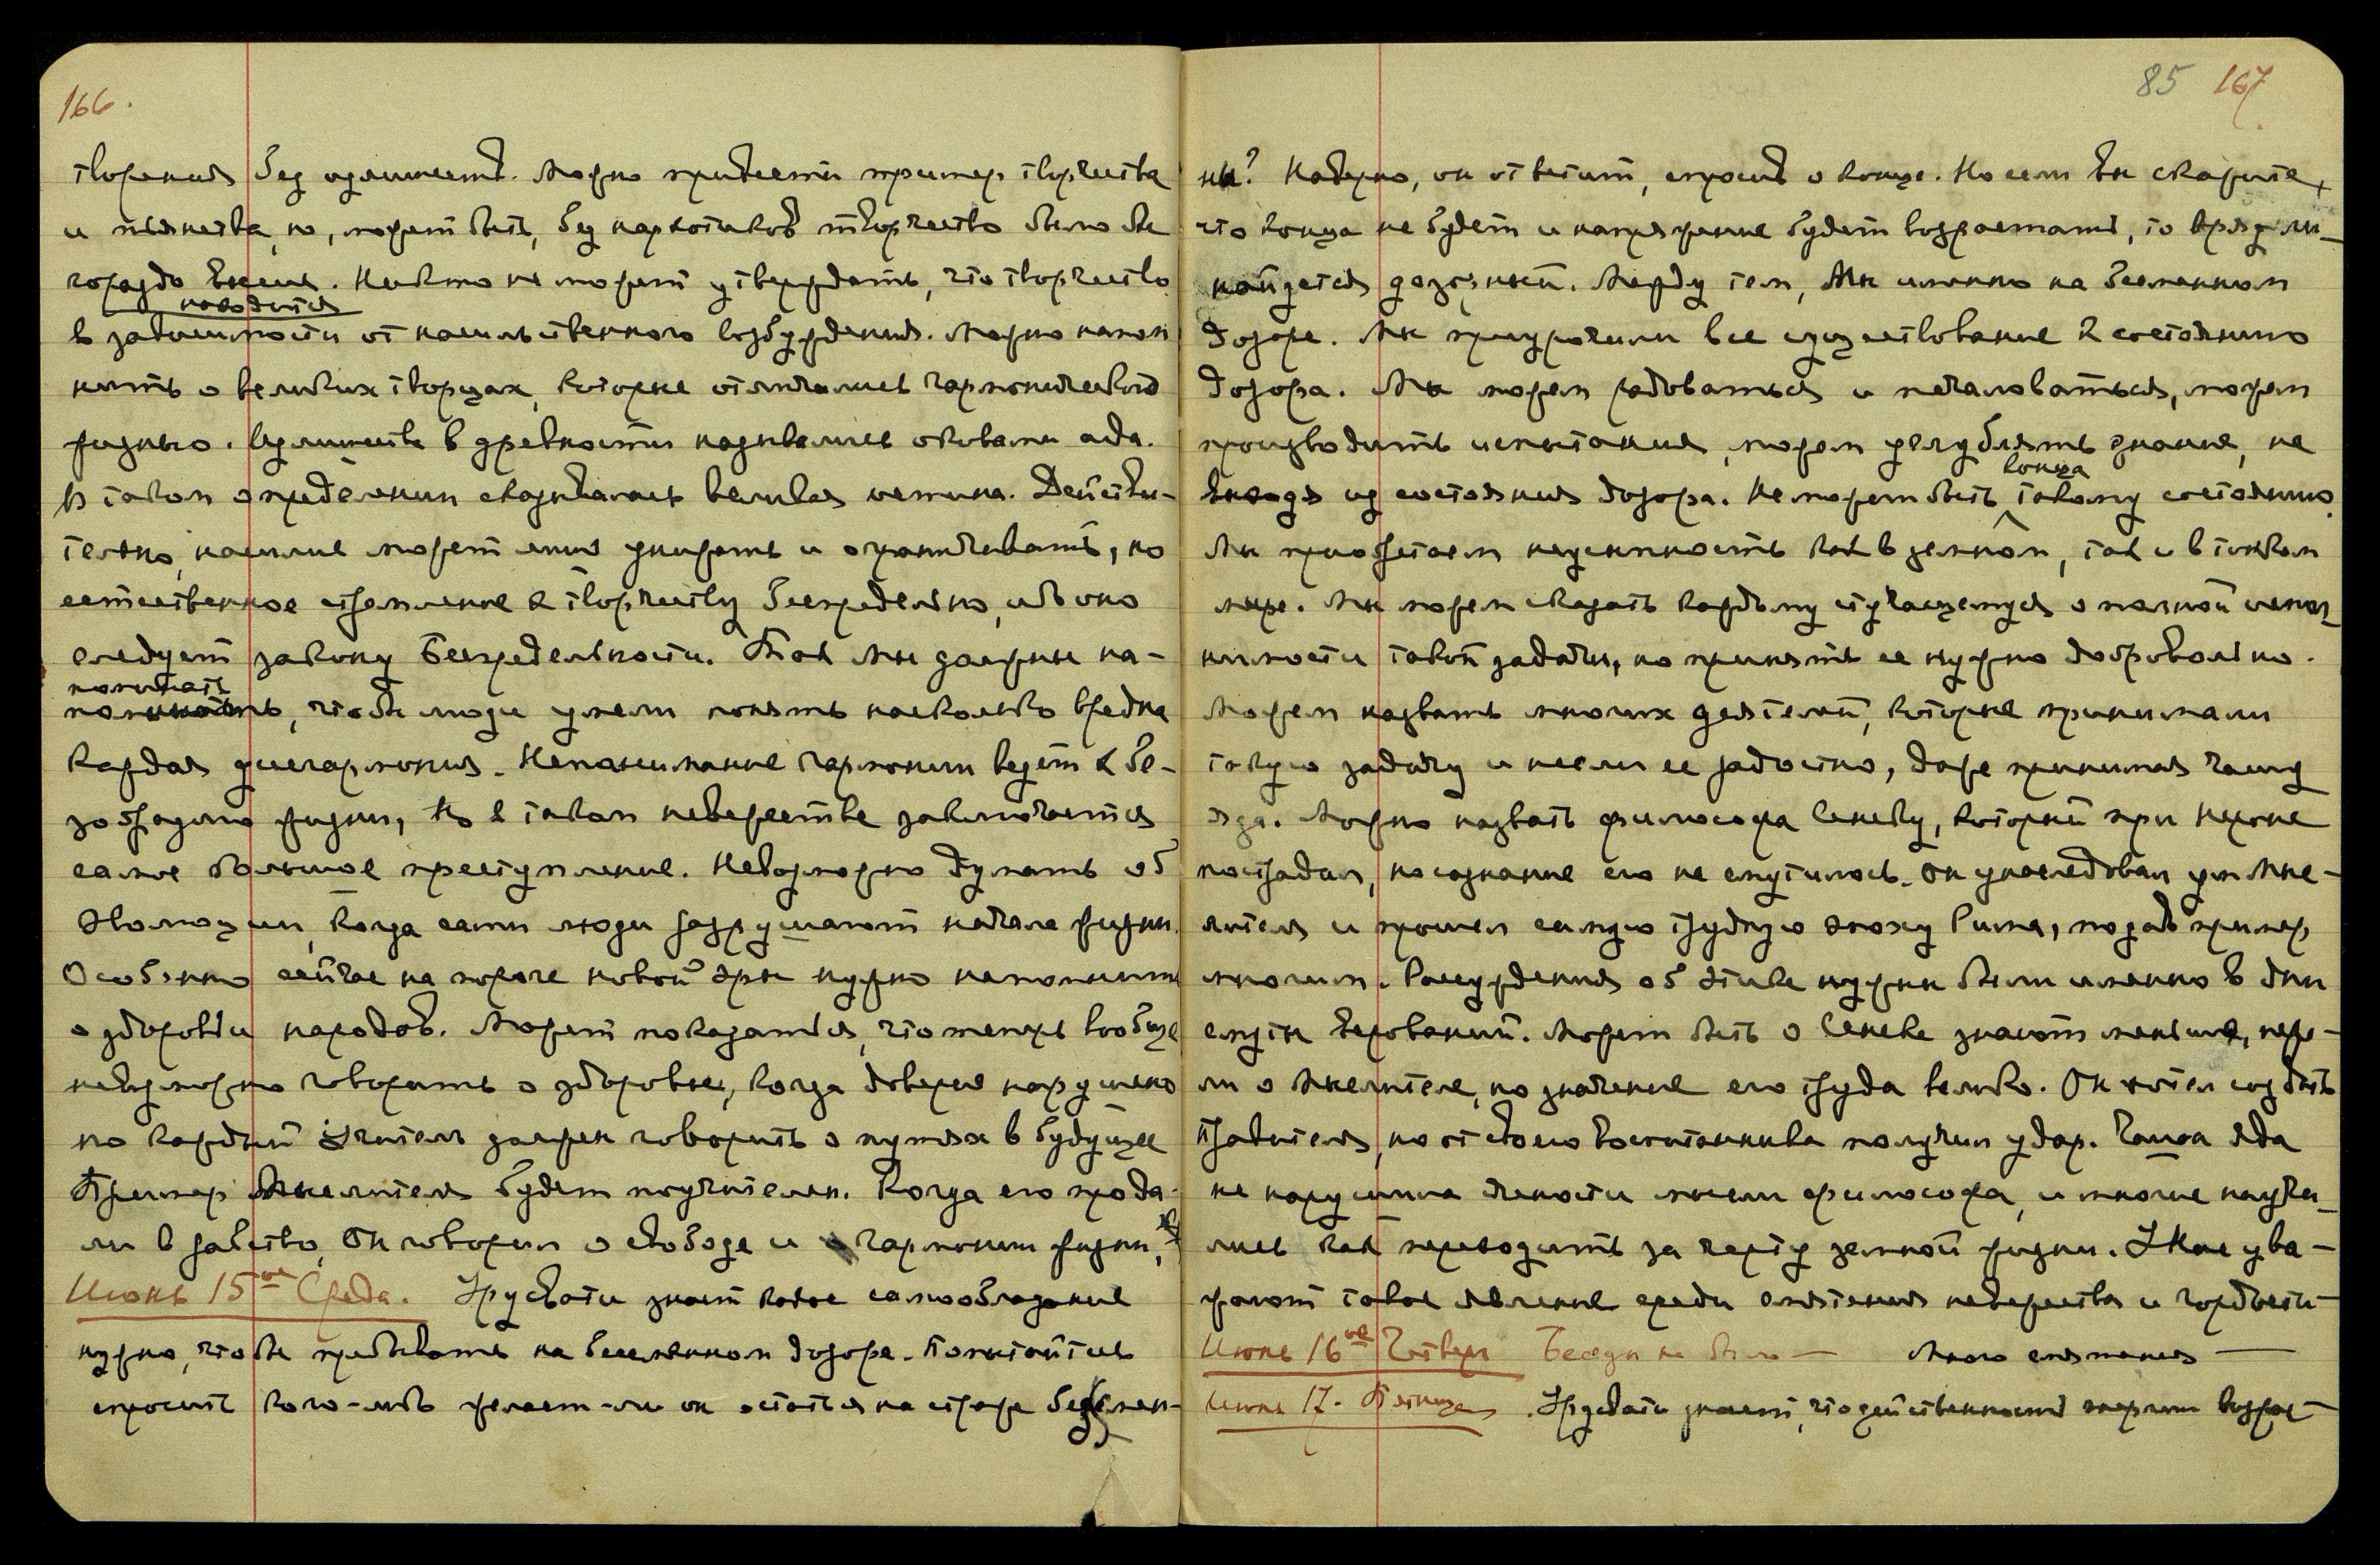 166.
творения без излишеств. Можно привести пример творчества
и пьянства, но, может быть, без наркотиков творчество было бы
гораздо выше. Никто не может утверждать, что творчество
находится
в зависимости от насильственного возбуждения. Можно напом
нить о великих творцах, которые отличались гармонической
жизнью. Излишества в древности назывались оковами ада.
В таком определении сказывалась великая истина. Действи-
тельно, насилие может лишь унижать и ограничивать, но
естественное стремление к творчеству беспредельно, ибо оно
следует закону Беспредельности. Так Мы должны на-
поминать
, чтобы люди умели понять насколько вредна
каждая дисгармония. Непонимание гармонии ведет к бе-
зобразию жизни, но в таком невежестве заключается
самое большое преступление. Невозможно думать об
эволюции, когда сами люди разрушают начала жизни.
Особенно сейчас на пороге новой эры нужно напомнить
о здоровьи народов. Может показаться, что теперь вообще
невозможно говорить о здоровье, когда доверие нарушено
но каждый Учитель должен говорить о путях в будущее
Пример Мыслителя будет поучителен. Когда его прода-
ли в рабство, Он говорил о свободе и о гармонии жизни.
Июнь 15ое Среда. Урусвати знает какое самообладание
нужно, чтобы пребывать на бессменном дозоре. Попытайтесь
спросить кого-либо желает-ли он остаться на страже бессмен-
85 167
ны? Наверно, он ответит, спросив о конце. Но если вы скажите,
что конца не будет и напряжение будет возрастать, то вряд ли
найдется дозорный. Между тем, Мы именно на бессменном
дозоре. Мы приурочили все существование к состоянию
дозора. Мы можем радоваться и печаловаться, можем
производить испытания, можем углублять знание, не
конца
выходя из состояния дозора. Не может быть такому состоянию.
Мы приобретаем неустанность как в земном, так и в тонком
мире. Мы можем сказать каждому стучащемуся о полной испол
нимости такой задачи, но принять ее нужно добровольно.
Можем назвать многих деятелей, которые принимали
такую задачу и несли ее радостно, даже принимая чашу
яда. Можно назвать философа Сенеку, который при Нероне
пострадал, но сознание его не смутилось. Он унаследовал ум Мыс-
лителя и прошел самую трудную эпоху Рима, подав пример
многим. Рассуждения об этике нужны были именно в дни
смуты верований. Может быть о Сенеке знают меньше, неже-
ли о Мыслителе, но значение его труда велико. Он хотел создать
Правителя, но от своего воспитанника получил удар. Чаша яда
не нарушила ясности мысли философа, и многие научи-
лись как переходить за черту земной жизни. Мы ува-
жают такое явление среди смятения невежества и гордости
Июнь 16ое Четверг Беседы не было — Много смятения —
Июнь 17. Пятница. Урусвати знает, что действенность энергии возрас-